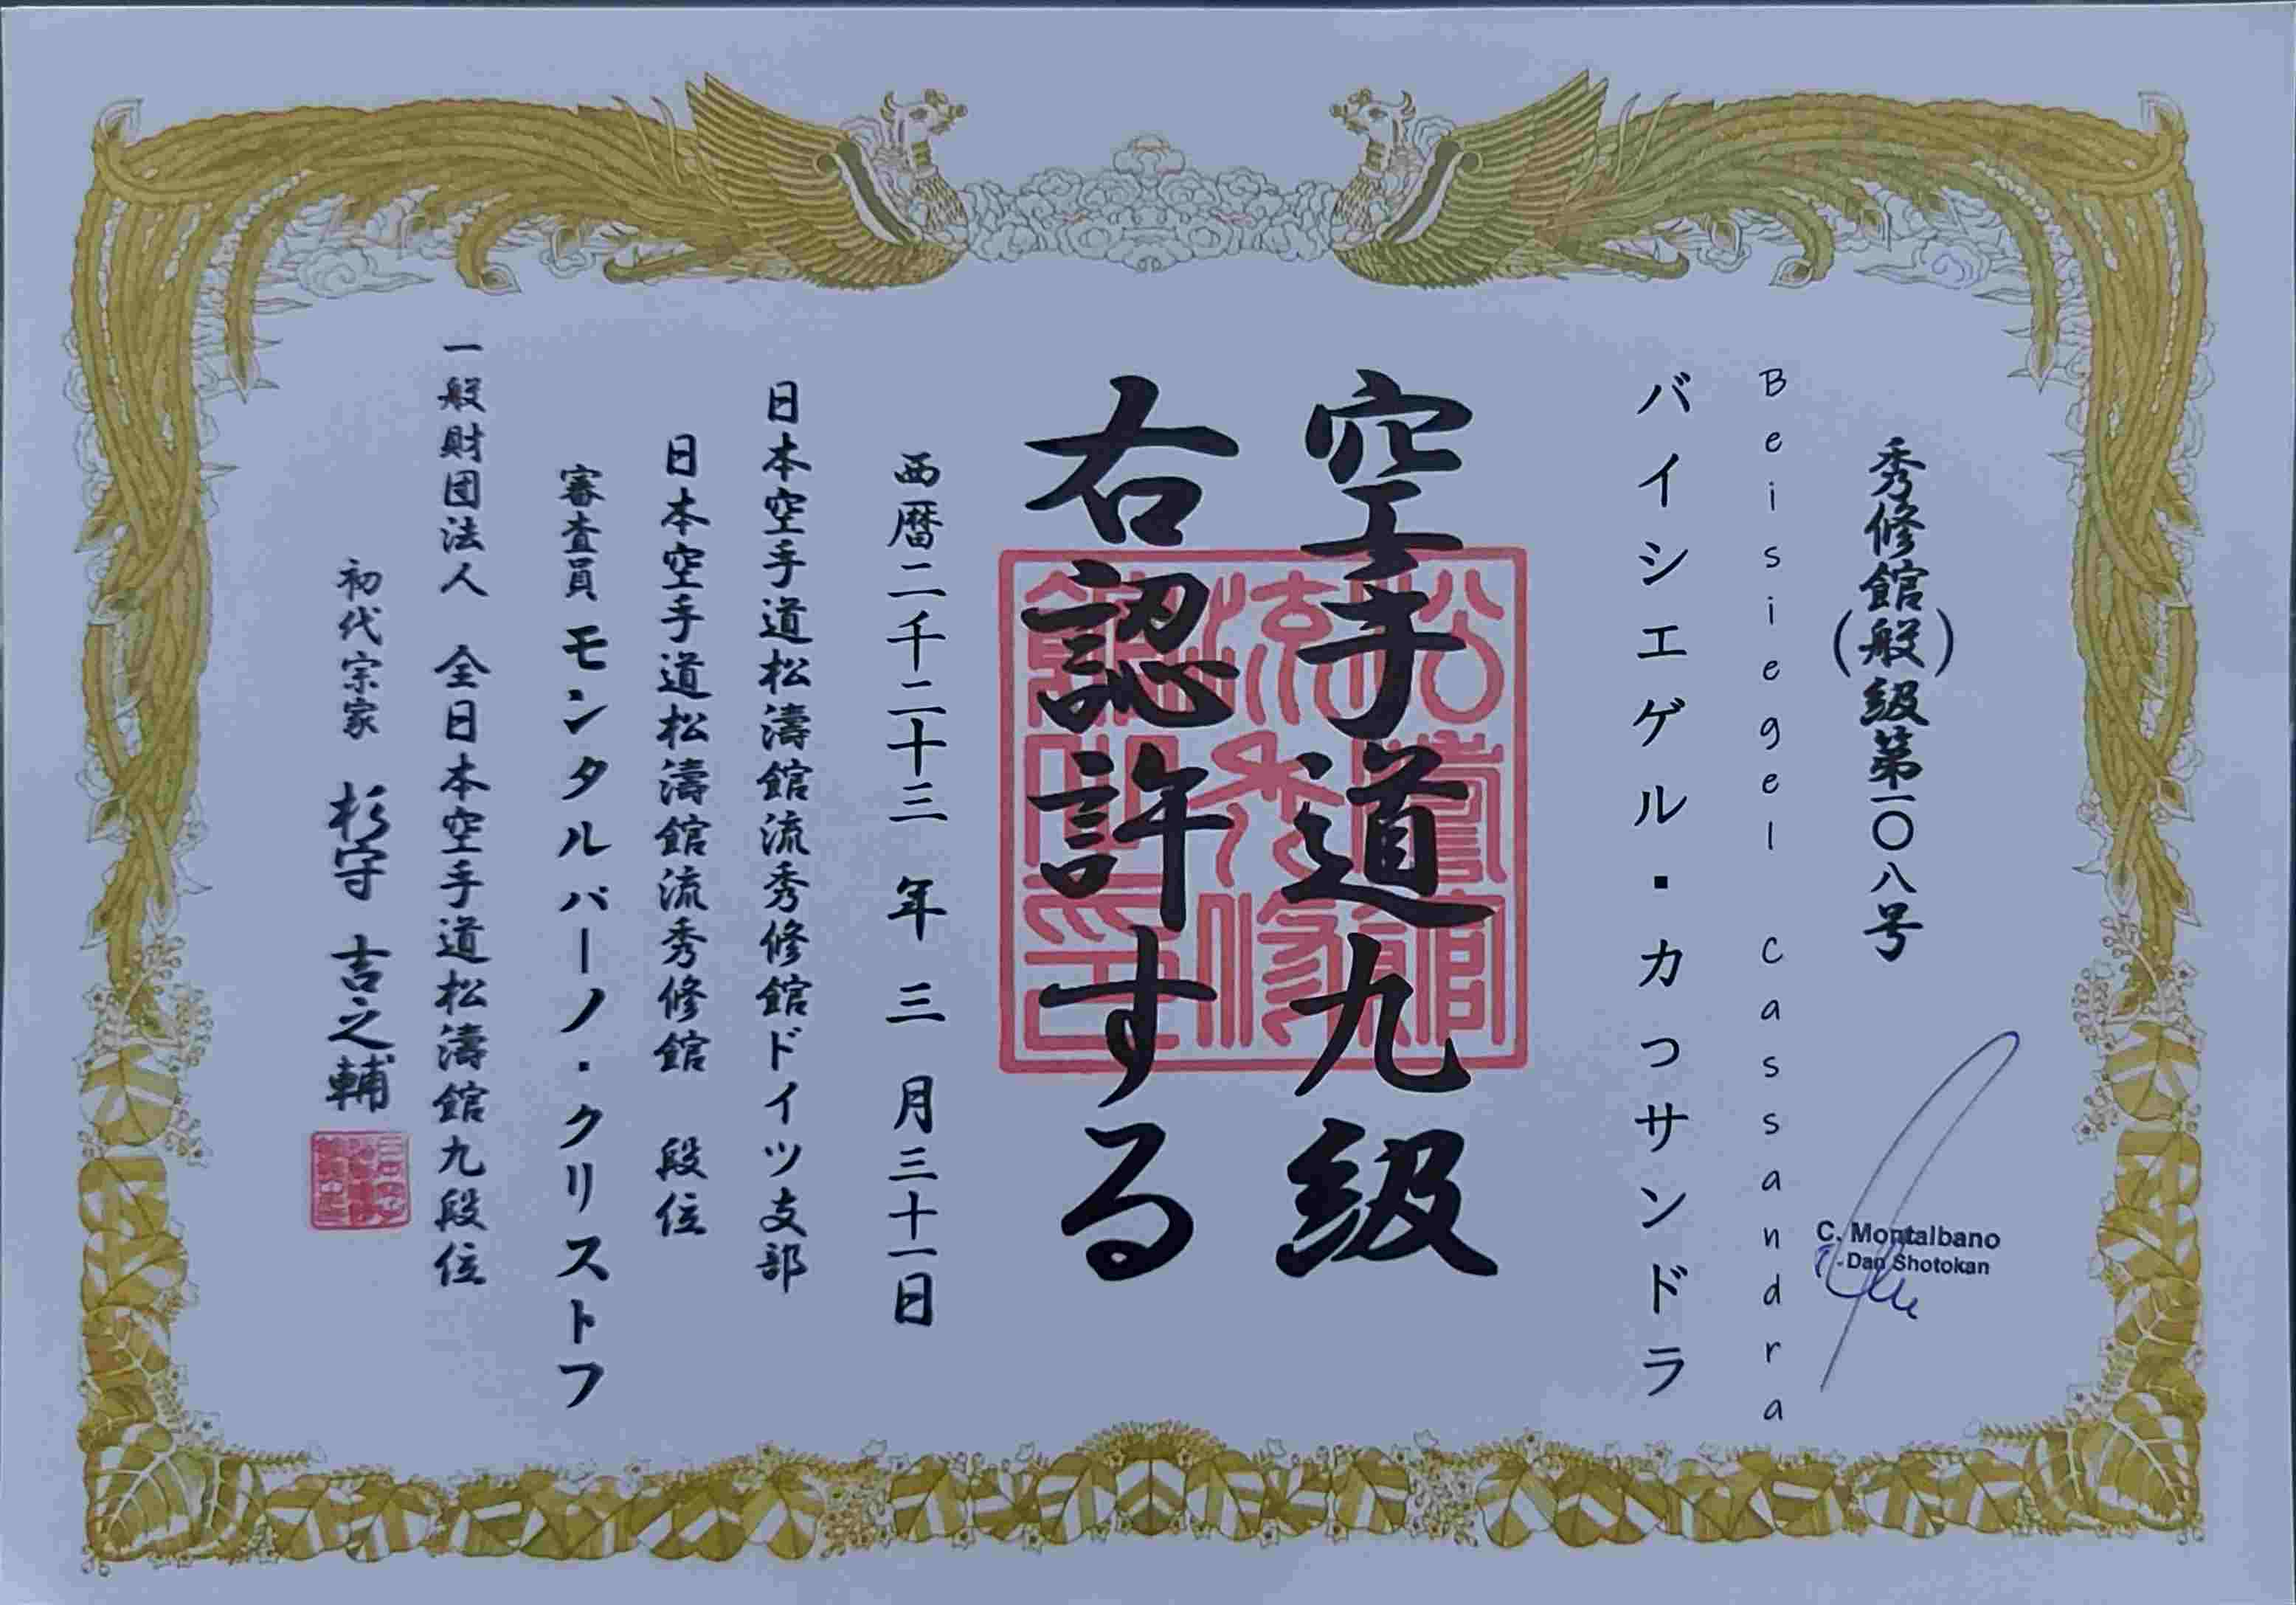 秀修館(般)級第一〇八号
Beisiegel Cassandra
バイシエゲル・カっサンドラ
空手道九級
右認許する
西暦二千二十三年三月三十一日
日本空手道松濤館流秀修館ドイツ支部
日本空手道松濤館流秀修館 段位
審査員 モンタルバーノ・クリストフ
一般財団法人 全日本空手道松濤館九段位
初代宗家 杉守 吉之輔
C. Montalbano
. Dan Shotokan